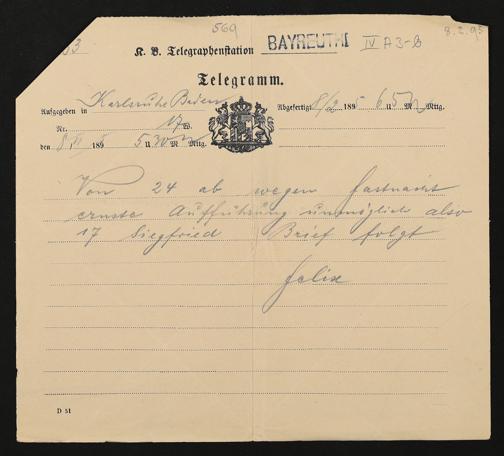 569
8.2.95
3
K. B. Telegraphenstation BAYREUTH IV A3-8
Telegramm.
Aufgegeben in Karlsruhe Baden Abgefertigt 8/2 1895 6 U 5 M Mttg.
Nr. 17 W.
den 8/II 1895 5 U 30 M Mttg.
Von 24 ab wegen Fastnacht
ernste Aufführung unmöglich also
17 Siegfried Brief folgt
Felix
D 51